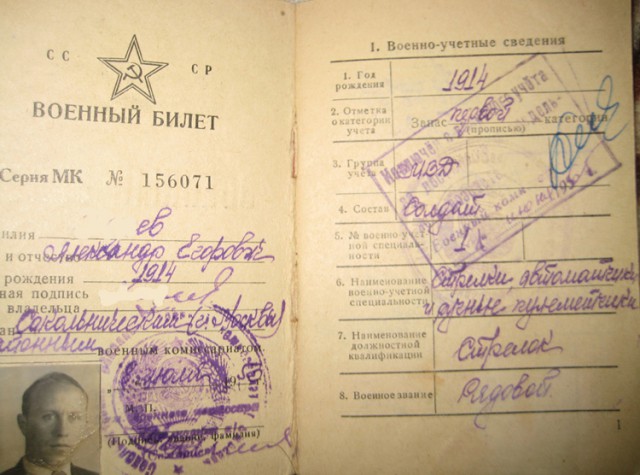 СС СР
ВОЕННЫЙ БИЛЕТ
Серия МК № 156071
илия ев
и отчество Александр Егорович
рождения 1914
ная подпись
владельца
Сокольническим (г. Москвы)
районным военным комиссариатом
июля 195
М.П.
(Подпись, звание, фамилия)
I. Военно-учетные сведения
1. Год рождения 1914
2. Отметка о категории учета Запас первой (прописью) категории
3. Группа учета
4. Состав Солдат
5. № военно-учетной специальности 1
6. Наименование военно-учетной специальности Стрелки автоматчики
и ручные пулеметчики
7. Наименование должностной квалификации Стрелок
8. Военное звание Рядовой
1